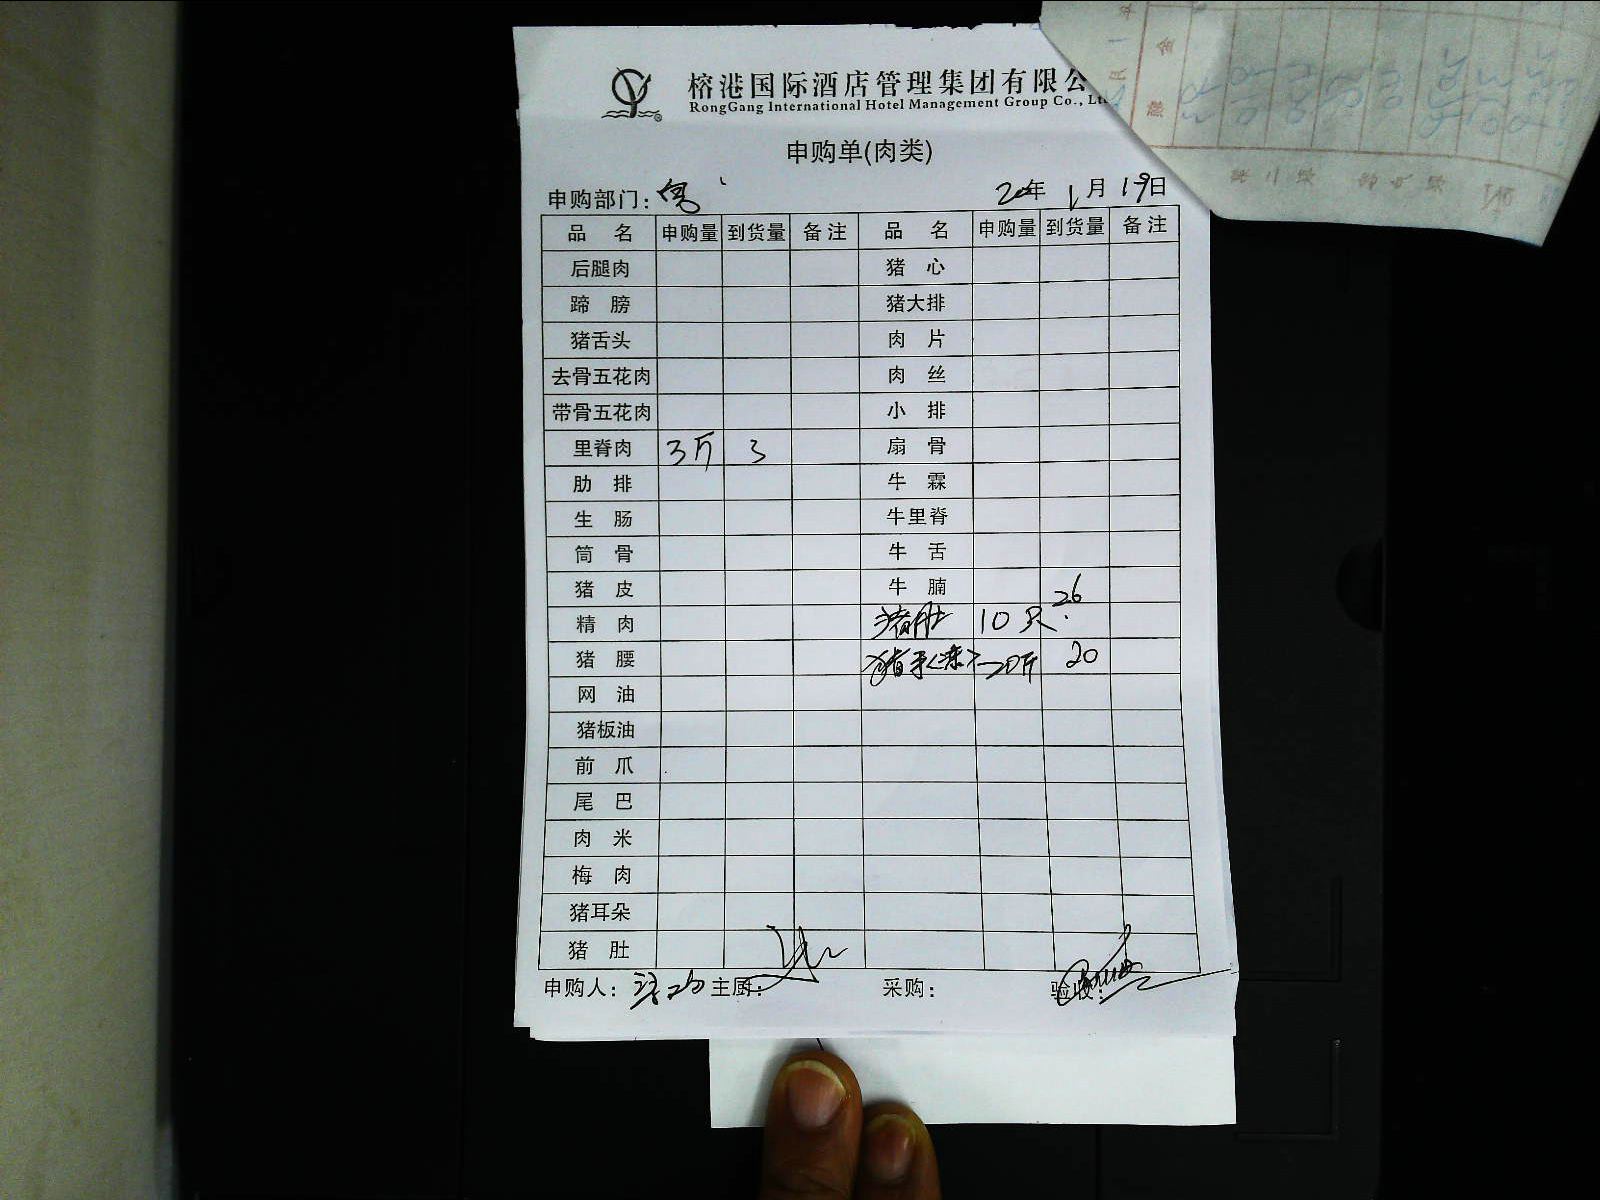 榕港国际酒店管理集团有限公
RongGang International Hotel Management Group Co., Lt
申购单(肉类)
申购部门: 年 1月19日
品名 申购量 到货量 备注 品名 申购量 到货量 备注
后腿肉 猪心
蹄膀 猪大排
猪舌头 肉片
去骨五花肉 肉丝
带骨五花肉 小排
里脊肉 3斤 3 扇骨
肋排 牛霖
生肠 牛里脊
筒骨 牛舌
猪皮 牛腩
精肉 猪肚 10只 26
猪腰 猪手 20斤 20
网油
猪板油
前爪
尾巴
肉米
梅肉
猪耳朵
猪肚
申购人: 主厨: 采购: 验收: